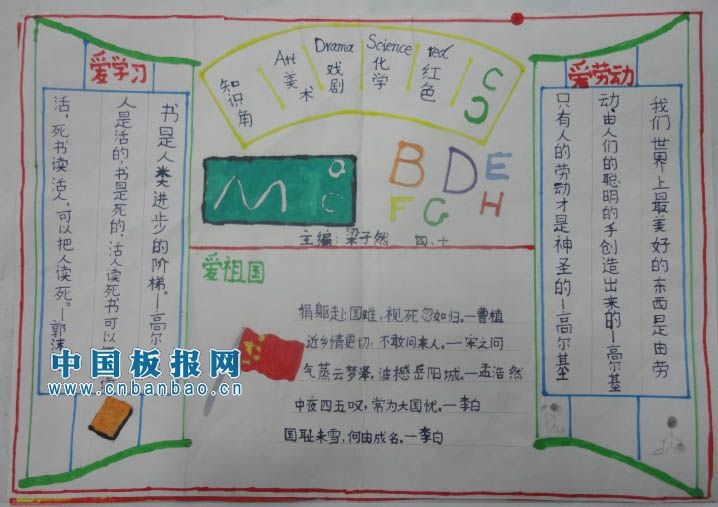 爱学习
书是人类进步的阶梯。—高尔基
人是活的,书是死的。活人读死书可以
活,死书读活人,可以把人读死。—郭沫
知识角
Art
美术
Drama
戏剧
Science
化学
red
红色
C
M a c
B D E
F G H
主编:梁子然 四、十
爱祖国
捐躯赴国难,视死忽如归。—曹植
近乡情更切,不敢问来人。—宋之问
气蒸云梦泽,波撼岳阳城。—孟浩然
中夜四五叹,常为大国忧。—李白
国耻未雪,何由成名。—李白
爱劳动
我们世界上最美好的东西是由劳
动,由人们的聪明的手创造出来的—高尔基
只有人的劳动才是神圣的—高尔基
中国板报网
www.cnbanbao.cn